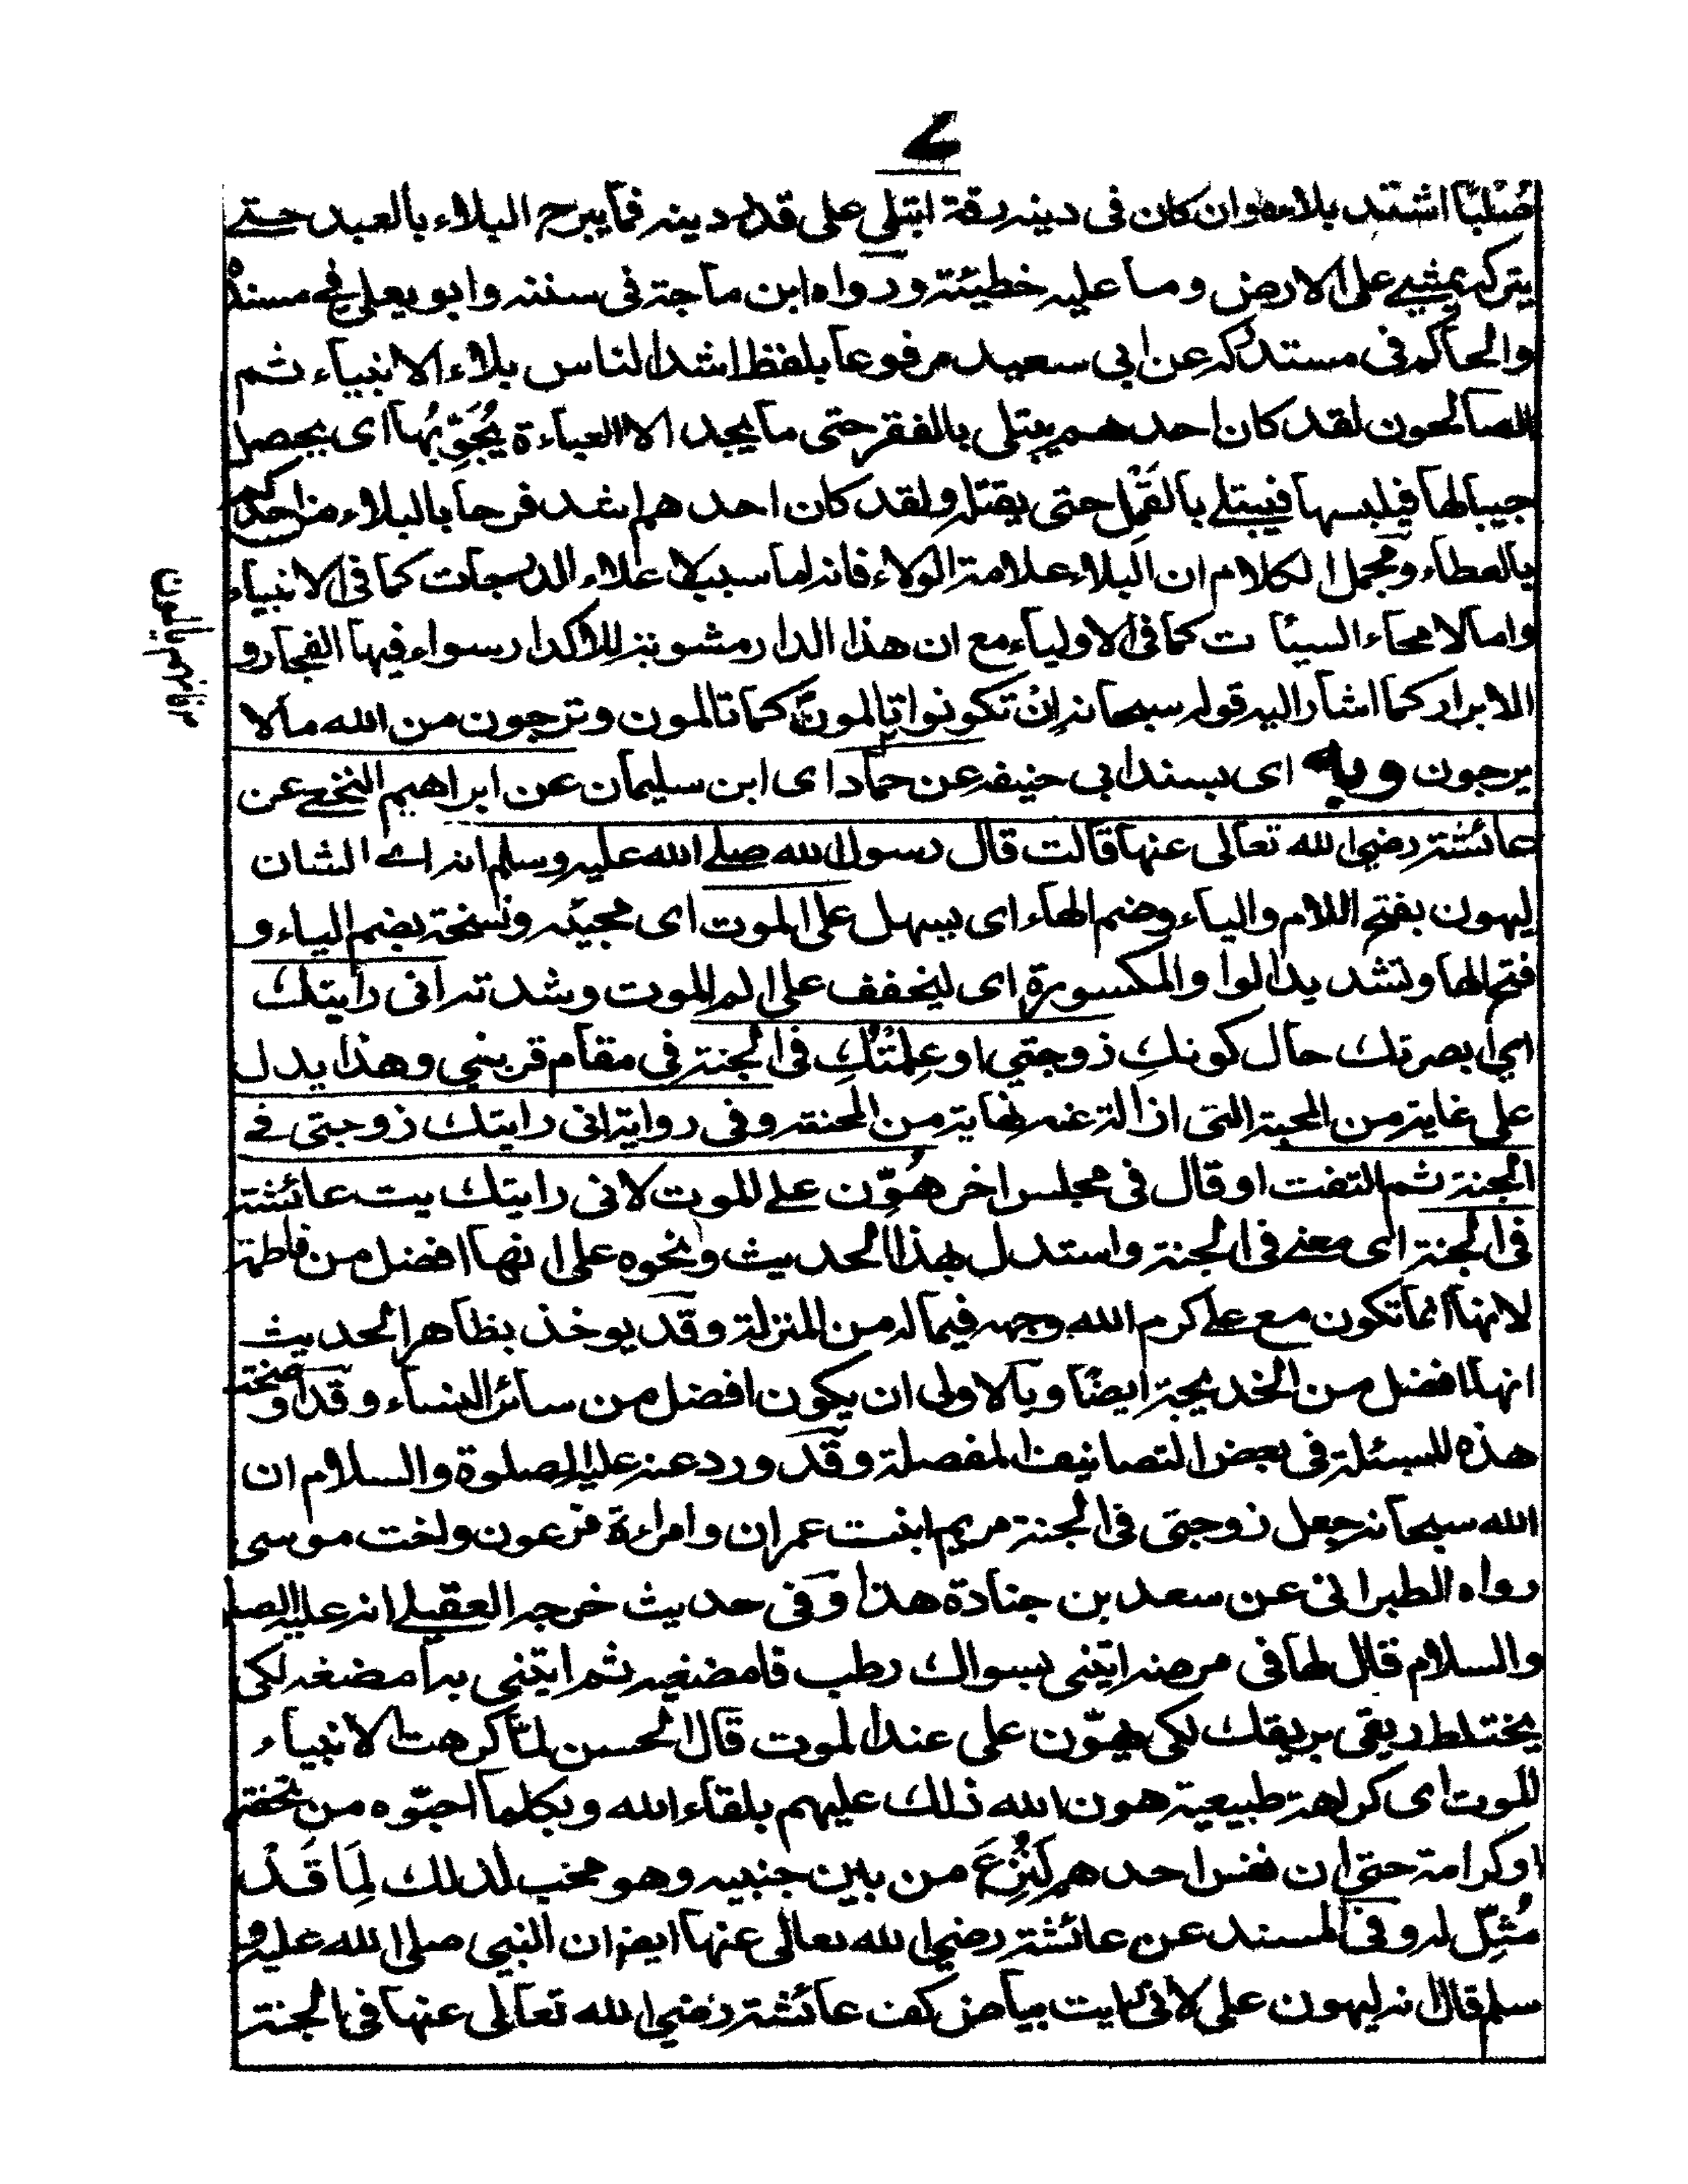 ٧
صُلْبًا اشتد بلاءه وان كان فى دينه رقة ابتلي على قدر دينه فما يبرح البلاء بالعبد حتے
يتركه يمشيے على الارض وما عليه خطيئة ورواه ابن ماجة فى سننه وابو يعلى فے مسنده
والحاكم فى مستدركه عن ابى سعيد مرفوعا بلفظ اشد الناس بلاء الانبياء ثم
الصالحون لقد كان احدهم يبتلى بالفقر حتى ما يجد الا العباءة يُجَوِّبُها اى يجعل
جيبا لها فيلبسها فيبتلے بالقَمْل حتى يقتله ولقد كان احدهم اشد فرحا بالبلاء من احدكم
بالعطاء ومجمل الكلام ان البلاء علامة الولاء فانه اما سبب لاعلاء الدرجات كما فى الانبياء
واما لامحاء السيئات كما فى الاولياء مع ان هذا الدار مشوبة للاكدار سواء فيها الفجار و
الابرار كما اشار اليه قوله سبحانه اِنْ تكونوا تالمون كما تالمون وترجون من الله مالا
فانهم يالمون
يرجون وبه اى بسند ابى حنيفه عن حماد اى ابن سليمان عن ابراهيم النخعے عن
عائشة رضي الله تعالى عنها قالت قال رسول الله صلے الله عليه وسلم انه اے الشان
ليهون بفتح اللام والياء وضم الهاء اى يسهل على الموت اى مجيئه ونسخة بضم الياء و
فتح الها وتشديد الواو المكسورة اى ليخفف على الم الموت وشدته انى رايتك
اي ابصرتك حال كونكِ زوجتي او عِلمْتُكِ فى الجنة فى مقام قربني وهذا يدل
على غاية من المحبة التى ازالة عنه نهاية من المحنة وفى رواية انى رايتك زوجتى فے
الجنة ثم التفت او قال فى مجلس اخر هُوِّن علے الموت لانى رايتك يت عائشة
فى الجنة اى معے فى الجنة واستدل بهذا الحديث ونحوه على انها افضل من فاطمة
لانها انما تكون مع علے كرم الله وجهه فيما له من المنزلة وقد يوخذ بظاهر الحديث
انها افضل من الخديجة ايضًا وبالاولى ان يكون افضل من سائر النساء وقد اوضحت
هذه المسئلة فى بعض التصانيف المفصلة وقد ورد عنه عليه الصلوة والسلام ان
الله سبحانه جعل زوجتى فى الجنة مريم ابنت عمران وامراءة فرعون واخت موسى
رواه الطبرانى عن سعد بن جنادة هذا وفى حديث خرجه العقيلے انه عليه الصلوة
والسلام قال لها فى مرضه ايتنى بسواك رطب فامضغيه ثم ايتنى به امضغه لكى
يختلط ريقى بريقك لكى يهوّن على عند الموت قال الحسن لمّا كرهت الانبياء
الموت اى كراهة طبيعية هون الله ذلك عليهم بلقاء الله وبكلما احبّوه من تحفته
او كرامة حتى ان نفس احدهم لَتُنْزَعَ من بين جنبيه وهو محب لذلك لِمَا قَدْ
مُثِّل له وفى المسند عن عائشة رضي الله تعالى عنها ايض ان النبى صلى الله عليه و
سلم قال انه ليهون على لانى رايت بياض كف عائشة رضي الله تعالى عنها فى الجنة